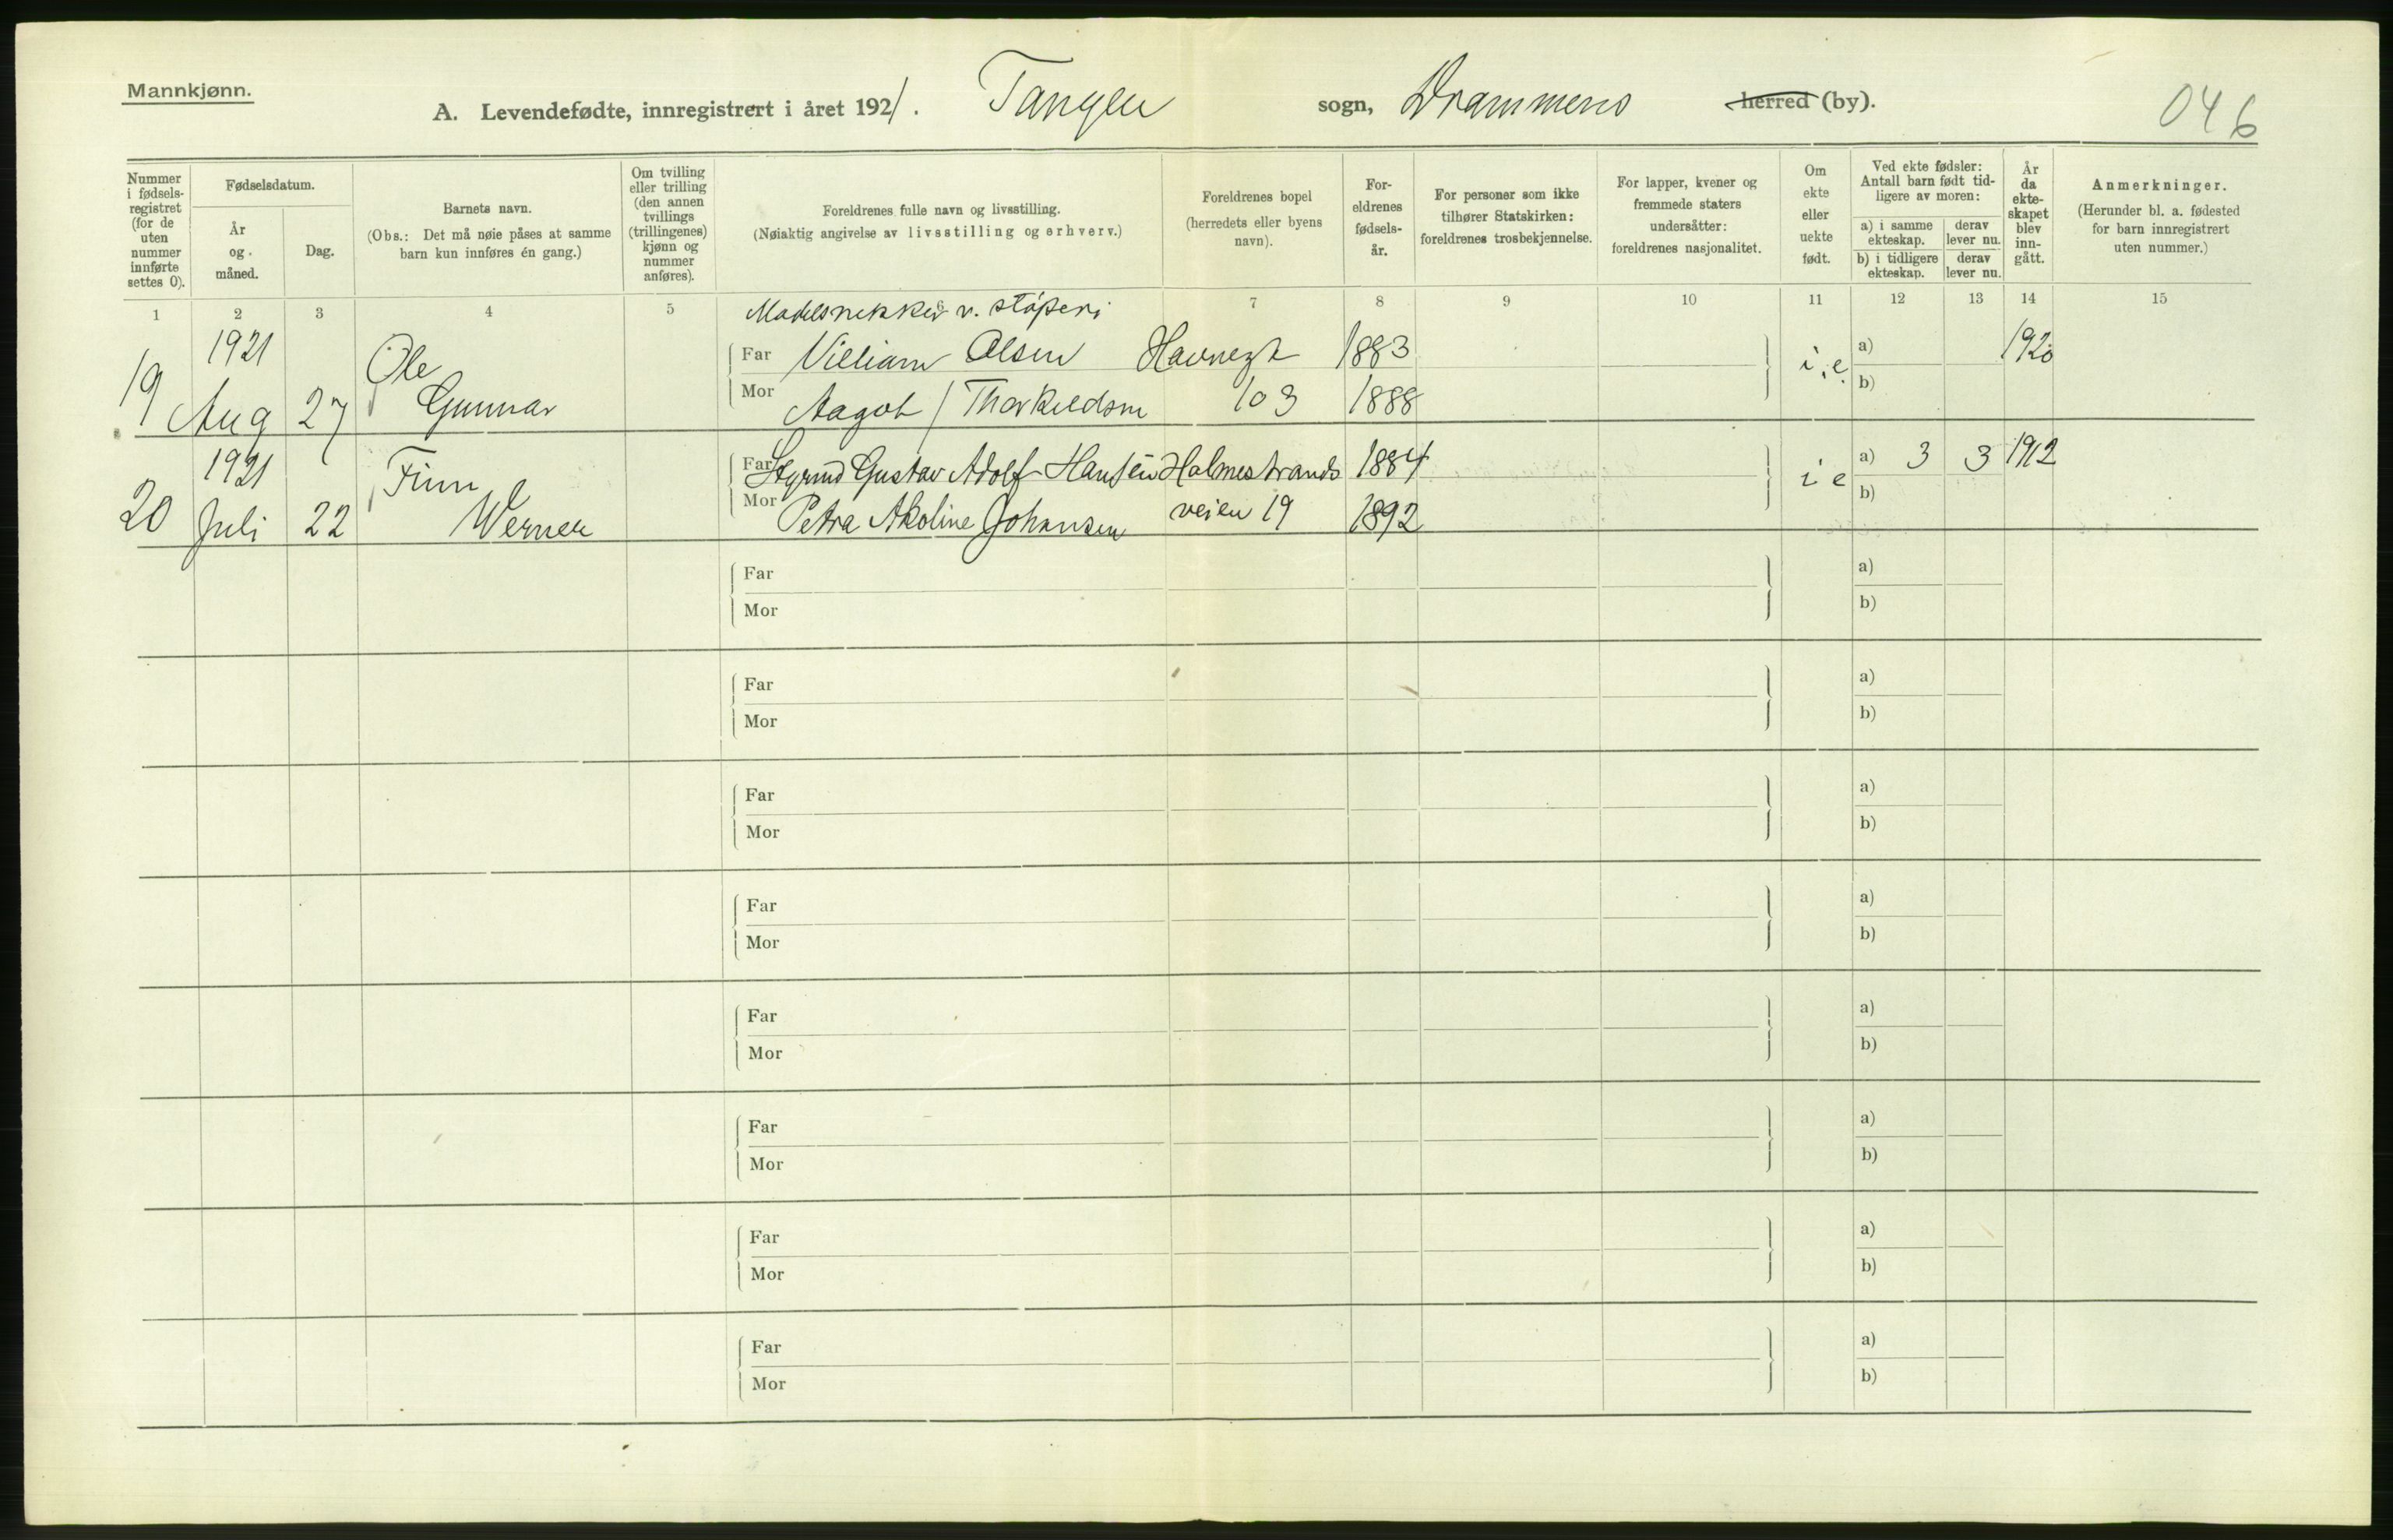 Mannkjønn.
A. Levendefødte, innregistrert i året 1921. Tangen sogn, Drammens herred (by).
046
Nummer i fødsels-registret (for de uten nummer innførte settes 0).
Fødselsdatum.
År og måned.
Dag.
Barnets navn.
(Obs.: Det må nøie påses at samme barn kun innføres én gang.)
Om tvilling eller trilling (den annen tvillings (trillingenes) kjønn og nummer anføres).
Foreldrenes fulle navn og livsstilling.
(Nøiaktig angivelse av livsstilling og erhverv.)
Foreldrenes bopel
(herredets eller byens navn).
For-eldrenes fødsels-år.
For personer som ikke tilhører Statskirken: foreldrenes trosbekjennelse.
For lapper, kvener og fremmede staters undersåtter: foreldrenes nasjonalitet.
Om ekte eller uekte født.
Ved ekte fødsler: Antall barn født tid-ligere av moren:
a) i samme ekteskap.
derav lever nu.
b) i tidligere ekteskap.
derav lever nu.
År da ekte-skapet blev inn-gått.
Anmerkninger.
(Herunder bl. a. fødested for barn innregistrert uten nummer.)
1 2 3 4 5 6 7 8 9 10 11 12 13 14 15
Modelsnekker v. støperi
19 1921 Aug 27 Ole Gunnar
Far William Olsen Havnegt 1883 i.e. a) 1920
Mor Aagot Thorkildsen 103 1888 b)
20 1921 Juli 22 Finn Werner
Far Gustav Adolf Hansen Holmestrands 1884 i e a) 3 3 1912
Mor Petra Akoline Johansen veien 19 1892 b)
Far a)
Mor b)
Far a)
Mor b)
Far a)
Mor b)
Far a)
Mor b)
Far a)
Mor b)
Far a)
Mor b)
Far a)
Mor b)
Far a)
Mor b)